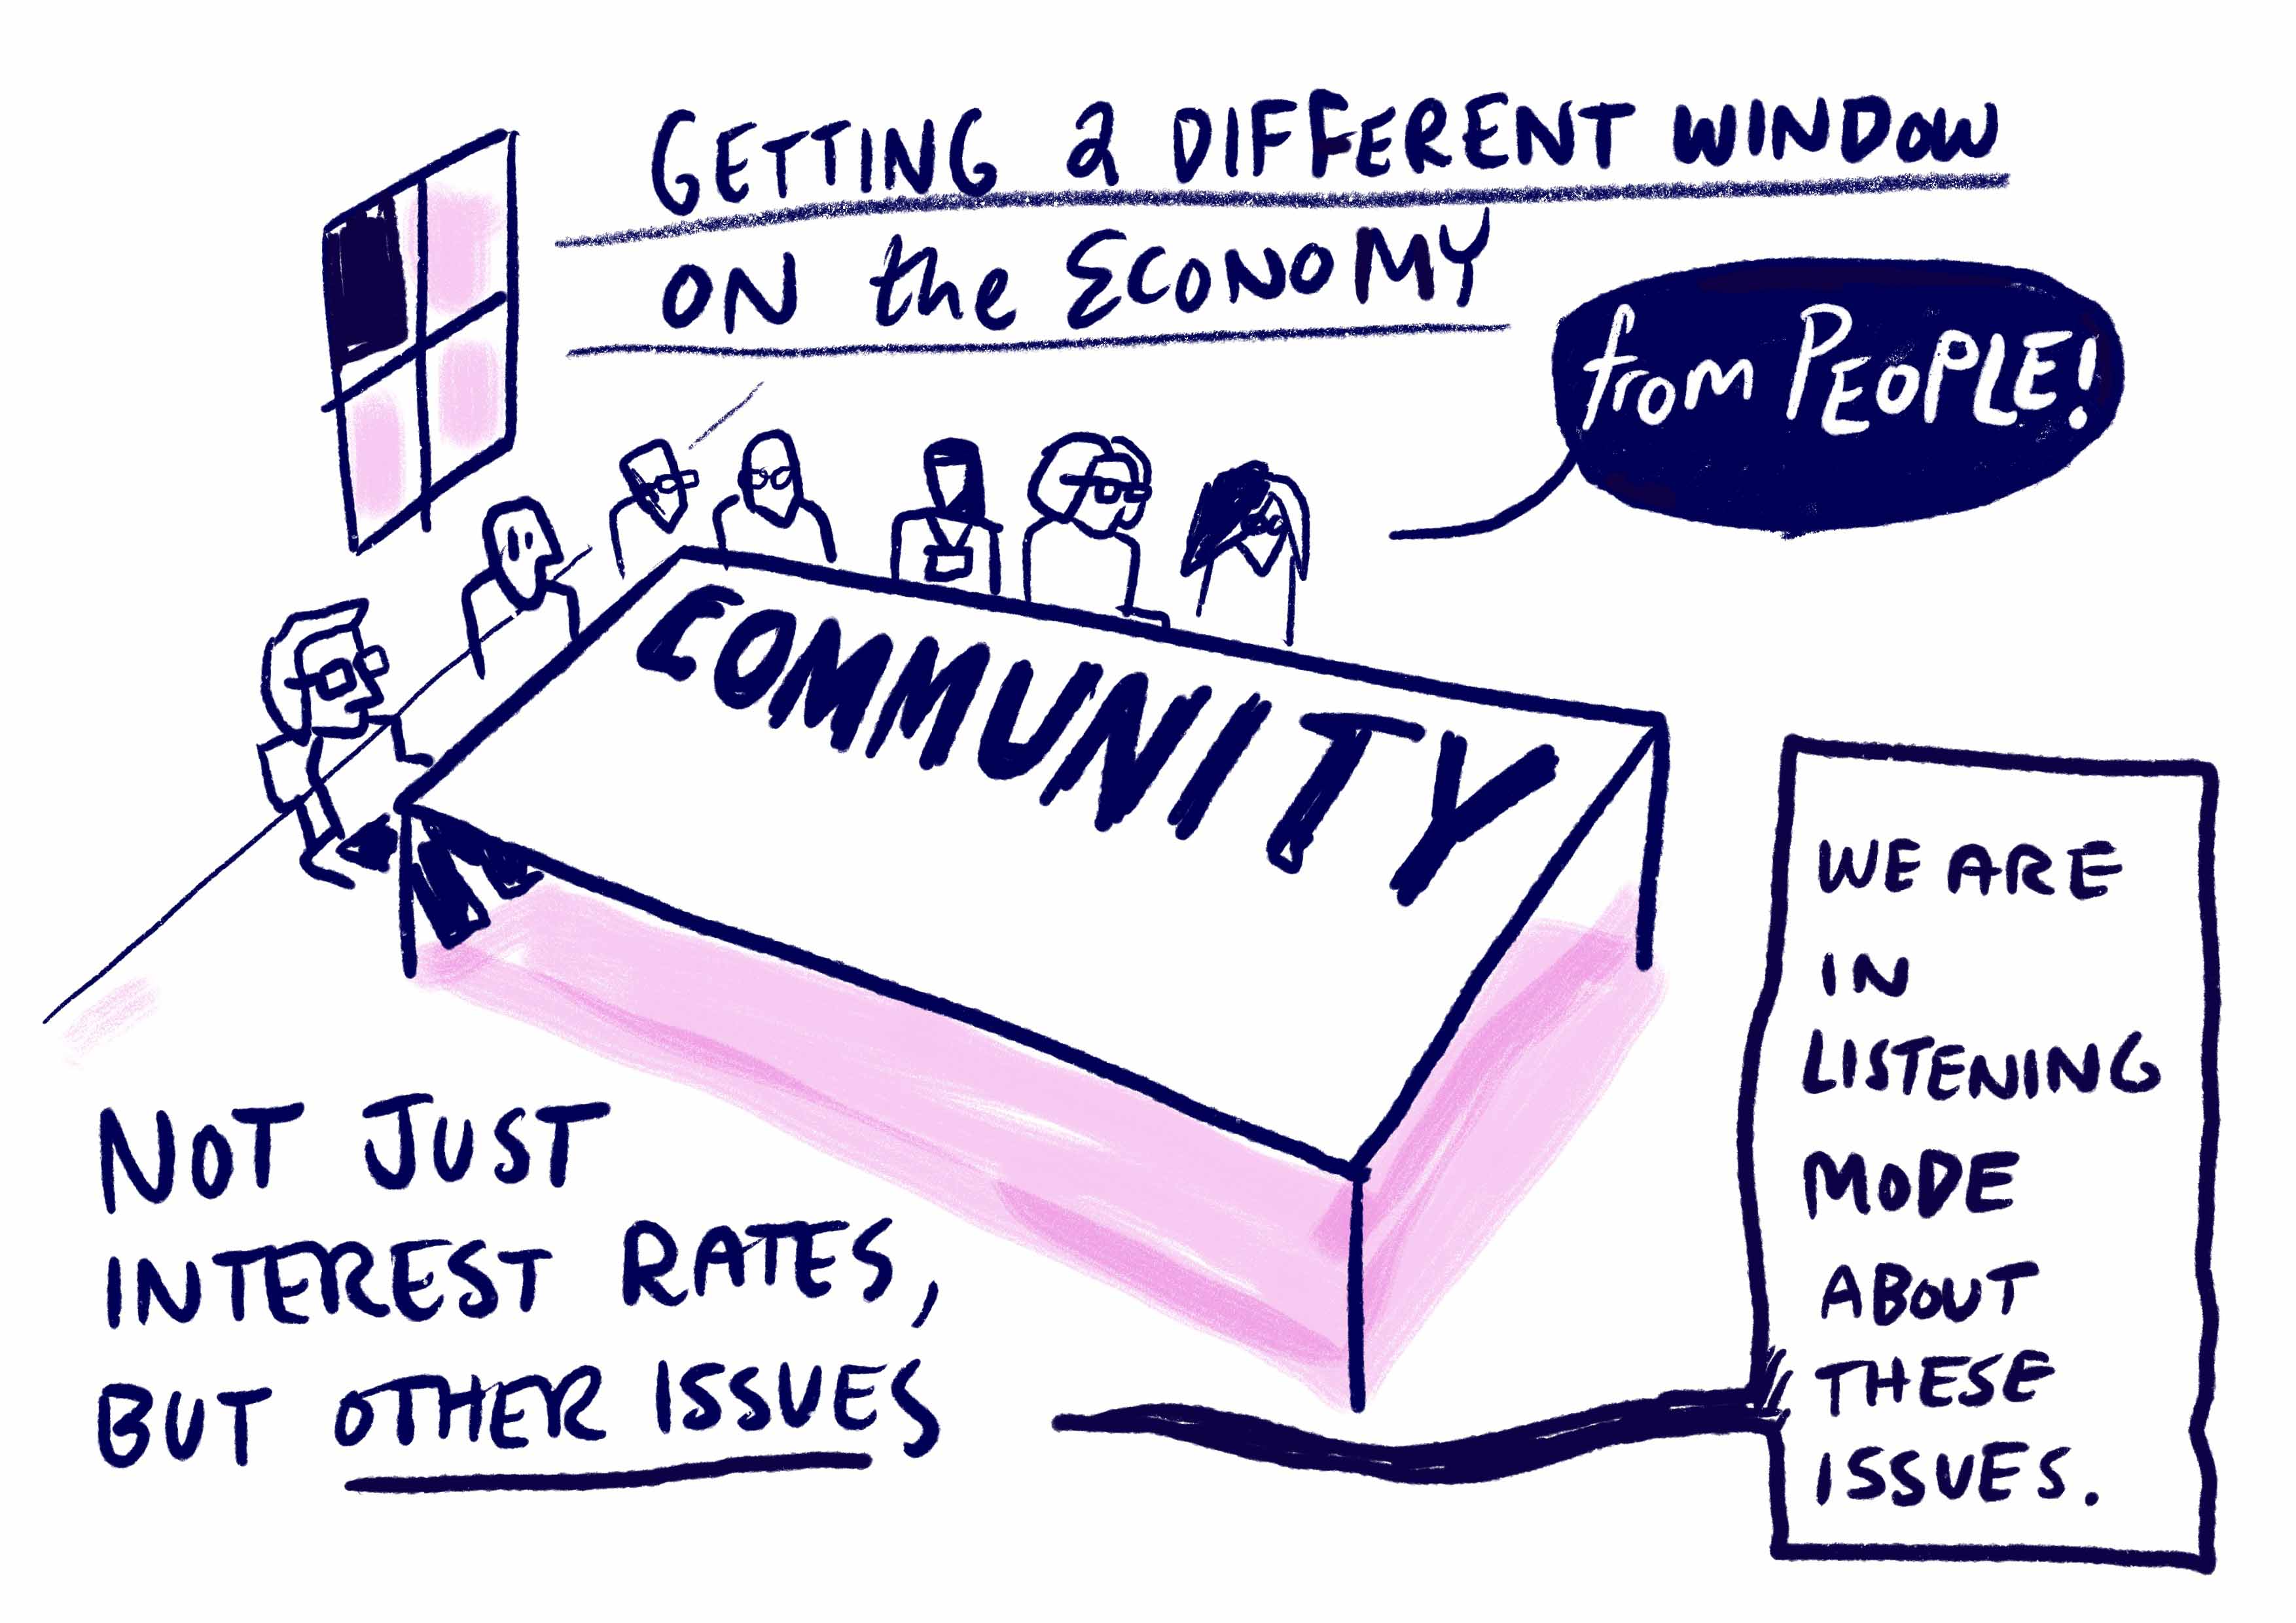 GETTING a DIFFERENT WINDOW
ON the ECONOMY
from PEOPLE!
COMMUNITY
NOT JUST
INTEREST RATES,
BUT OTHER ISSUES
WE ARE
IN
LISTENING
MODE
ABOUT
THESE
ISSUES.